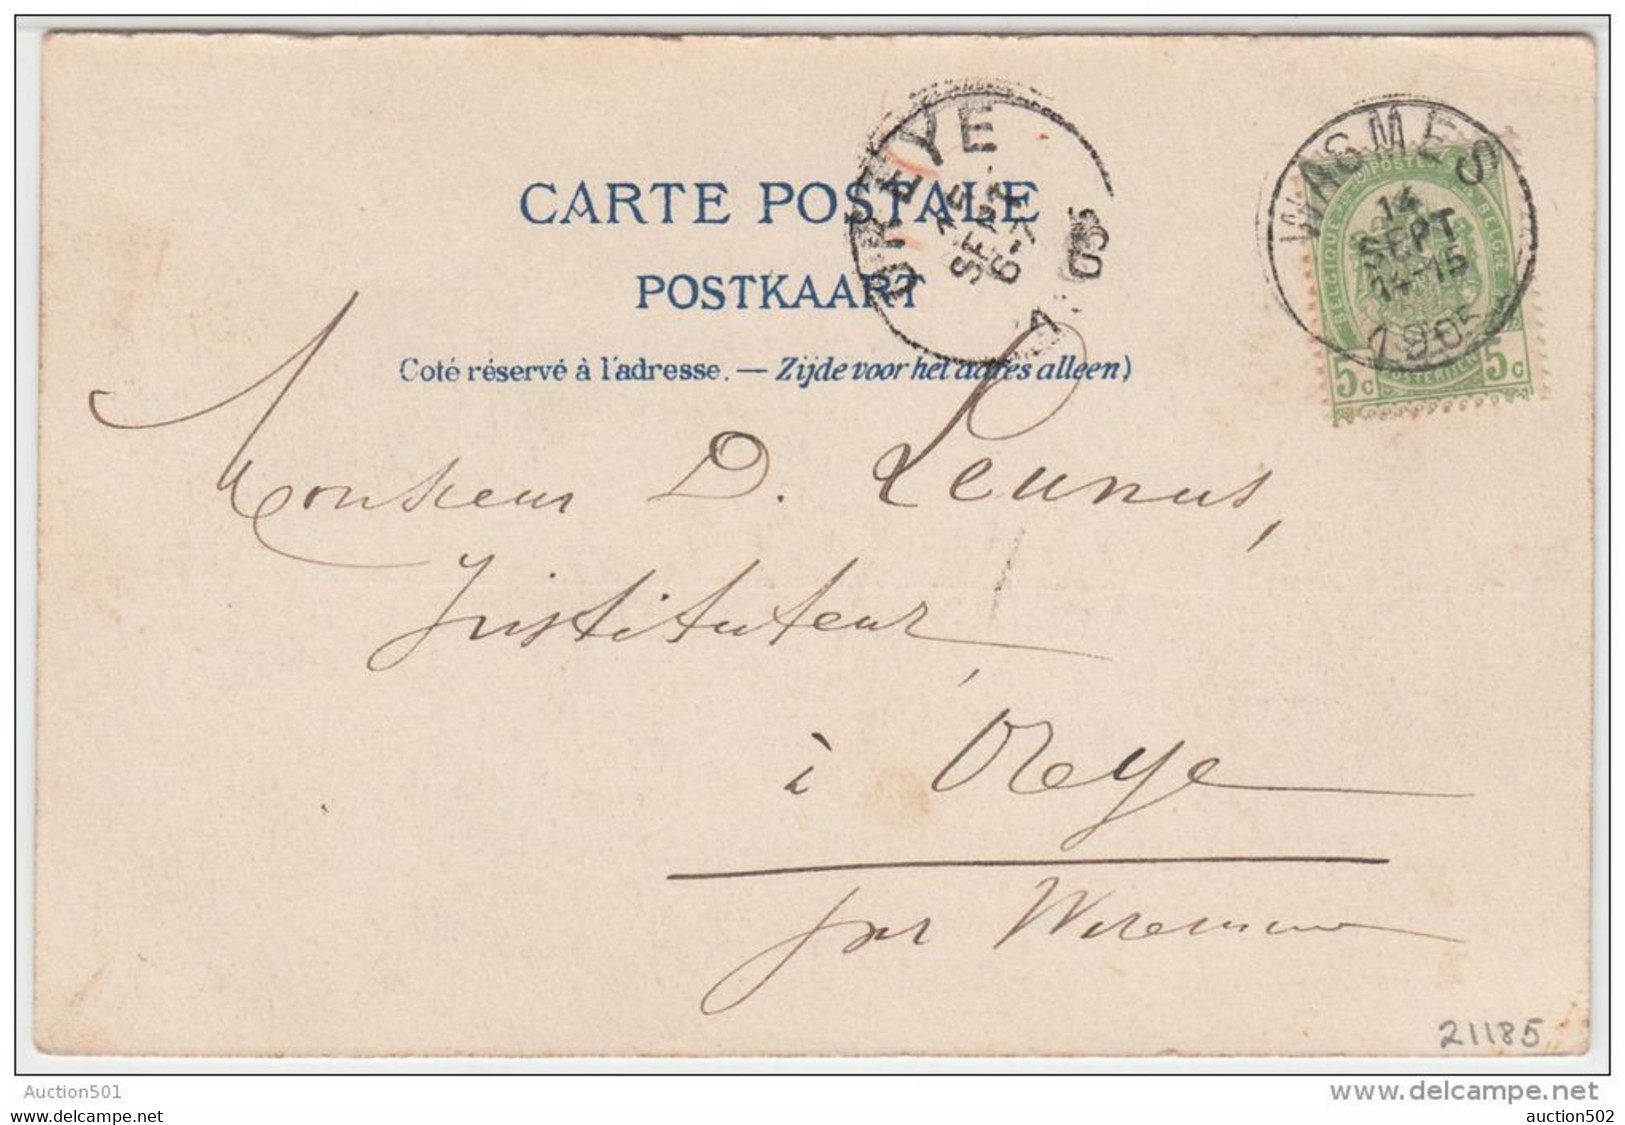 CARTE POSTALE
POSTKAART
Coté réservé à l'adresse. — Zijde voor het adres alleen)
OREYE
15
SEPT
6-7
1905
WASMES
14
SEPT
14-15
1905
BELGIQUE POSTES BELGIE
5c 5c
Monsieur D. Leunus,
Instituteur,
à Oreye
par Waremme
21185
Auction501
www.delcampe.net
auctioncarte.com
auction502